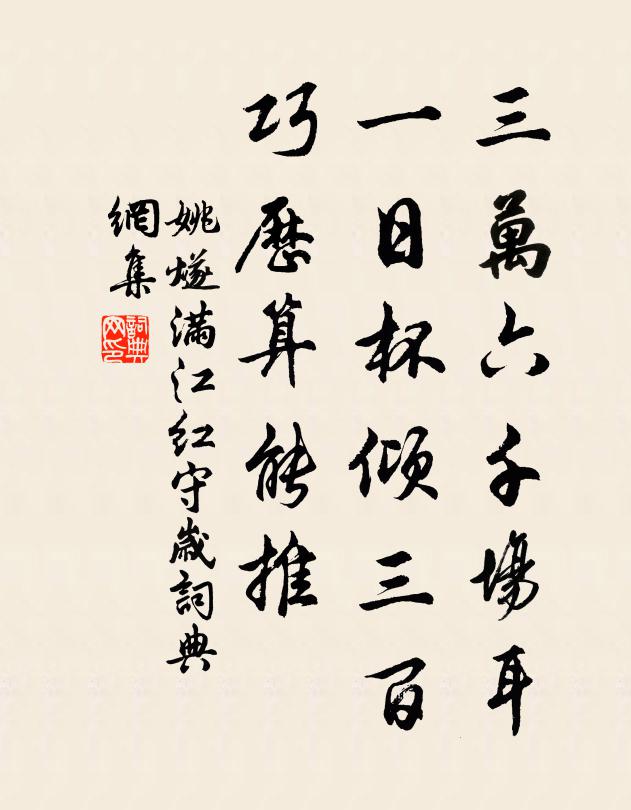 三萬六千場耳
一日杯傾三百
巧歷算能推
姚燧滿江紅守歲詞典
網集
詞典
网印